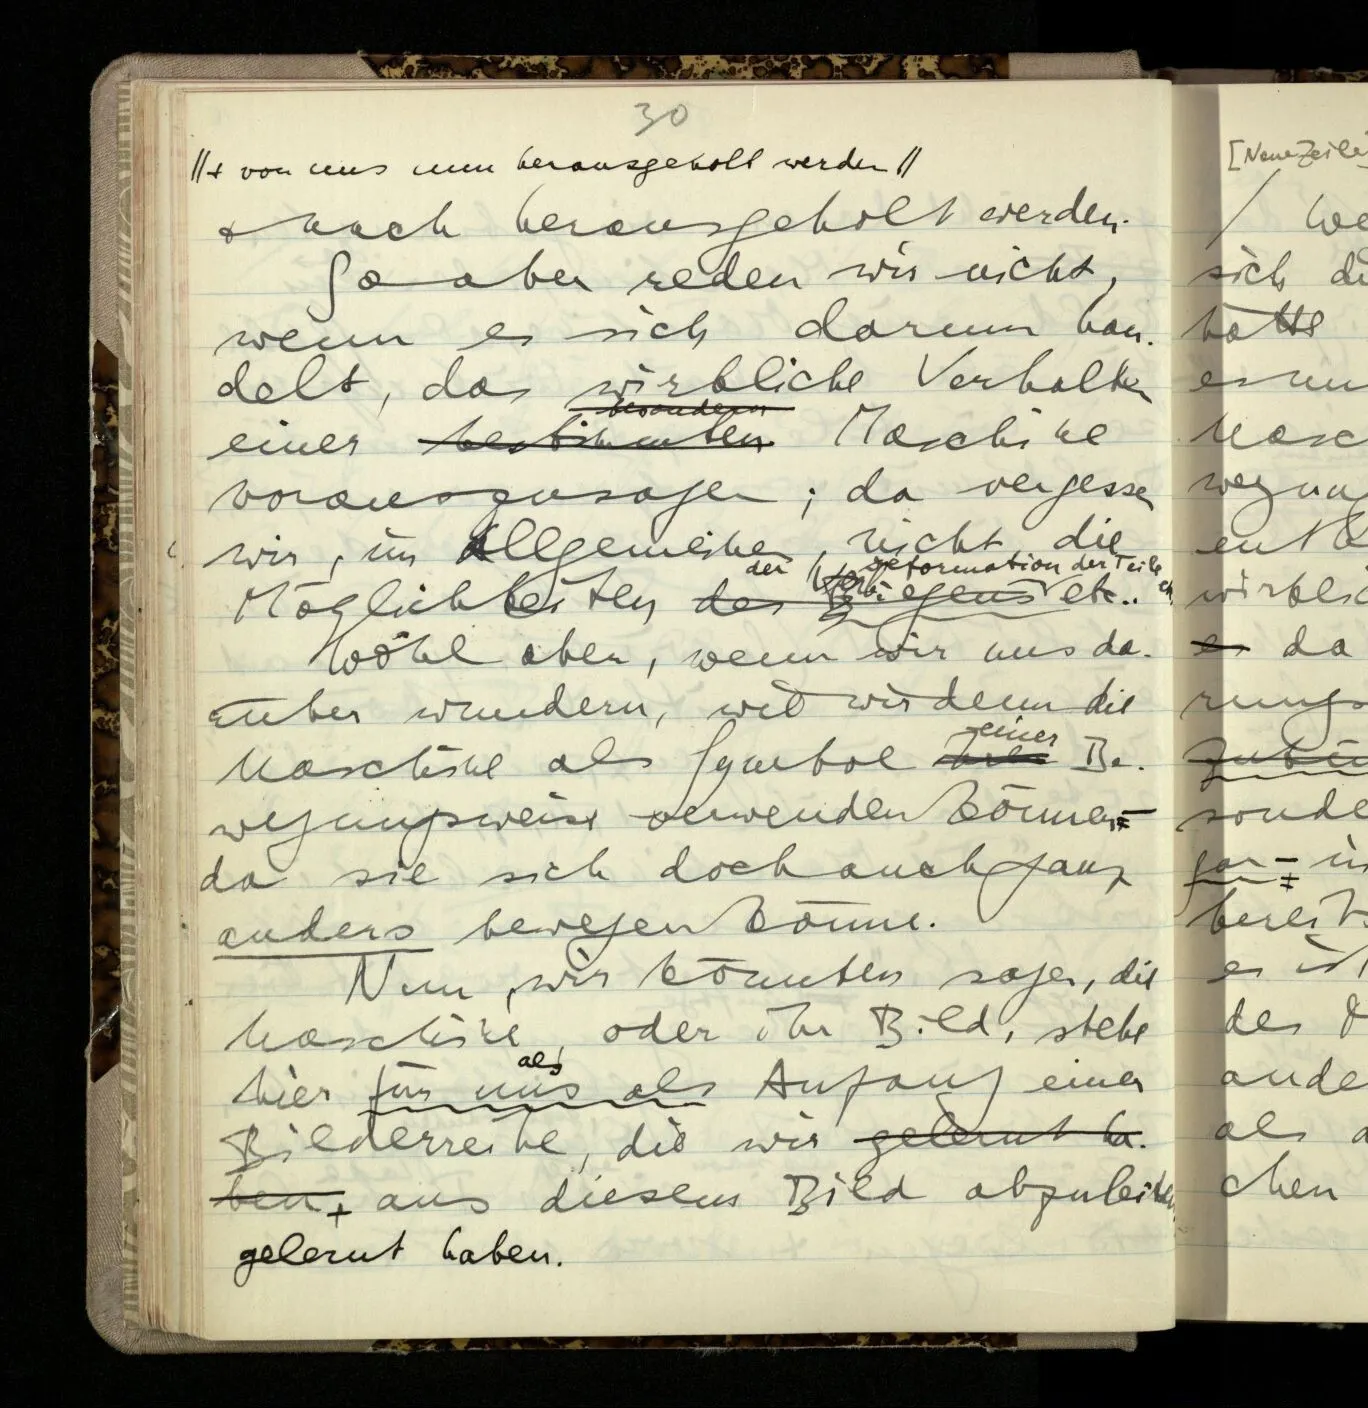 30
||+ von uns nun herausgeholt werden ||
+ nach herausgeholt werden.
So aber reden wir nicht,
wenn es sich darum han-
delt, das wirkliche Verhalten
besondern
einer bestimmten Maschine
vorauszusagen; da vergessen
wir, im Allgemeinen, nicht die
der Deformation der Teile
Möglichkeiten des Verbiegens etc..
Wohl aber, wenn wir uns da-
rüber wundern, wie wir denn die
einer
Maschine als Symbol Be-
wegungsweise verwenden können =
da sie sich doch auch ganz
anders bewegen könne.
Nun, wir könnten sagen, die
Maschine, oder ihr Bild, stehe
als
hier für uns als Anfang einer
Bilderreihe, die wir gelernt ha-
ben + aus diesem Bild abzuleiten
gelernt haben.
[Neue Zeile]
/ We
sich di
hätte
es nun
Masc
wegung
wirklic
es da
rungs
sonde
gar = in
bereit
es ist
des
ande
als
chen